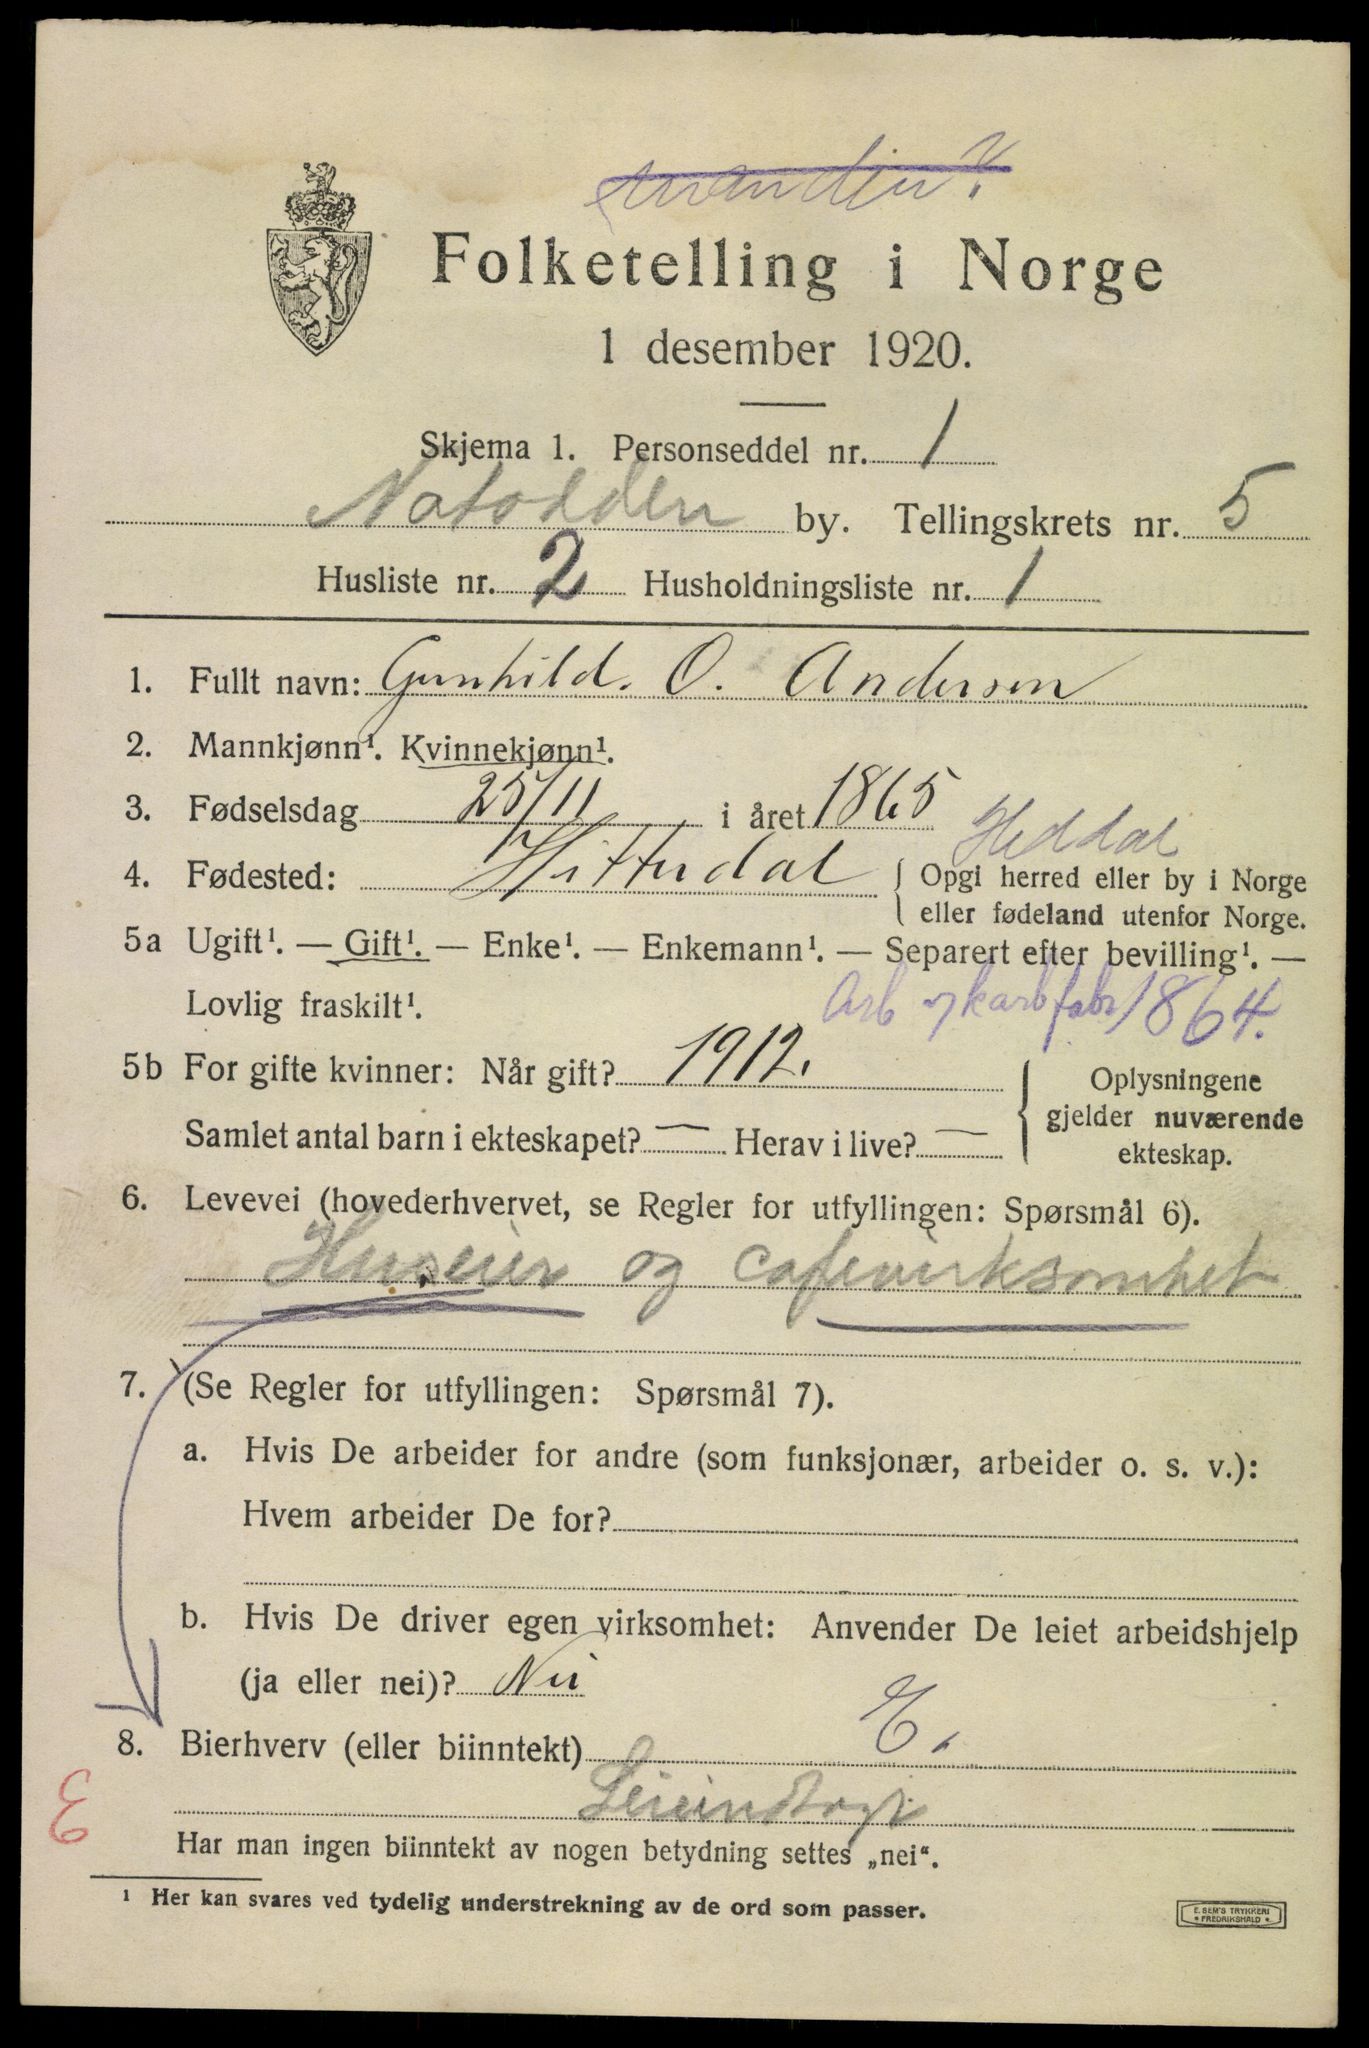 Folketelling i Norge
1 desember 1920.
Skjema 1. Personseddel nr. 1
Notodden by. Tellingskrets nr. 5
Husliste nr. 2 Husholdningsliste nr. 1
1. Fullt navn: Gunhild. O. Andersen
2. Mannkjønn¹. Kvinnekjønn¹.
3. Fødselsdag 25/11 i året 1865
Heddal
4. Fødested: Hitterdal { Opgi herred eller by i Norge
eller fødeland utenfor Norge.
5a Ugift¹. — Gift¹. — Enke¹. — Enkemann¹. — Separert efter bevilling¹. —
Lovlig fraskilt¹. Arb karbfabr 1864.
5b For gifte kvinner: Når gift? 1912. { Oplysningene
gjelder nuværende
ekteskap.
Samlet antal barn i ekteskapet? — Herav i live? —
6. Levevei (hovederhvervet, se Regler for utfyllingen: Spørsmål 6).
Huseier og cafevirksomhet
7. (Se Regler for utfyllingen: Spørsmål 7).
a. Hvis De arbeider for andre (som funksjonær, arbeider o. s. v.):
Hvem arbeider De for?
b. Hvis De driver egen virksomhet: Anvender De leiet arbeidshjelp
(ja eller nei)? Nei
8. Bierhverv (eller biinntekt) E.
Leieindtægt
E
Har man ingen biinntekt av nogen betydning settes „nei“.
¹ Her kan svares ved tydelig understrekning av de ord som passer.
E. SEM'S TRYKKERI
FREDRIKSHALD